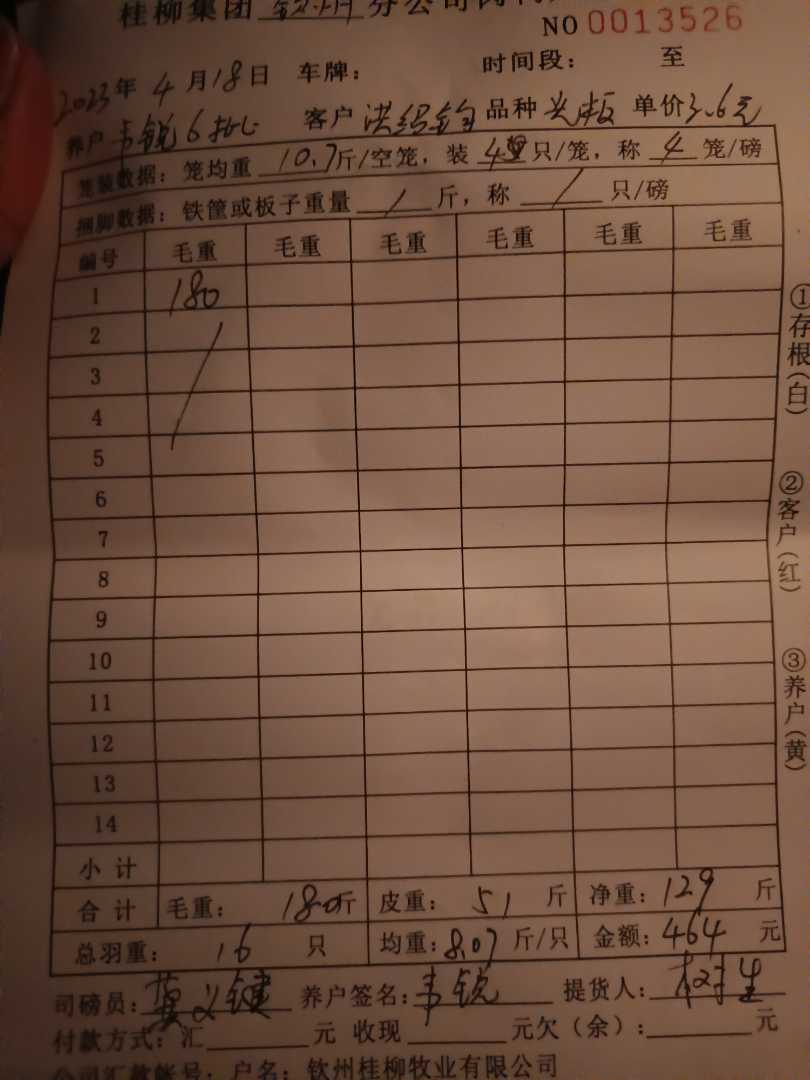 桂柳集团 钦州 分公司
NO 0013526
2023年 4 月 18 日 车牌： 时间段： 至
养户 韦锐6批 客户 洪绍 品种 光板 单价 3.6元
笼装数据：笼均重 10.7 斤/空笼，装 4 只/笼，称 4 笼/磅
捆脚数据：铁筐或板子重量 / 斤，称 / 只/磅
编号 毛重 毛重 毛重 毛重 毛重 毛重
1 180
2
3
4
5
6
7
8
9
10
11
12
13
14
小 计
合 计 毛重： 180斤 皮重： 51 斤 净重：129 斤
总羽重： 16 只 均重：8.07 斤/只 金额：464 元
司磅员：莫义键 养户签名：韦锐 提货人：
付款方式：汇 元 收现 元欠（余）： 元
公司汇款帐号：户名：钦州桂柳牧业有限公司
①存根（白）
②客户（红）
③养户（黄）